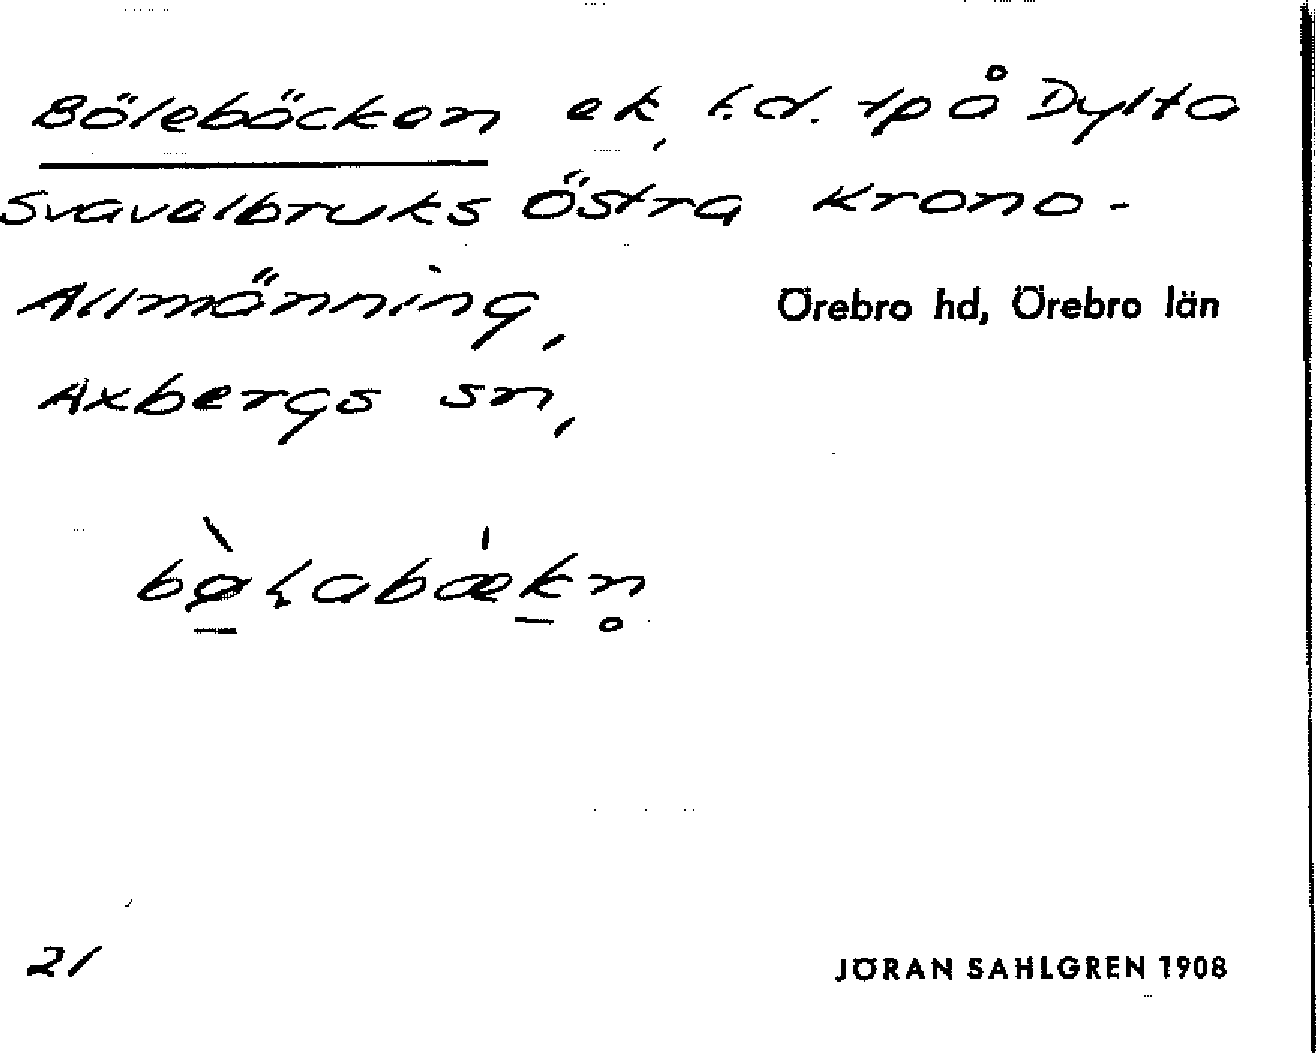 Bölebäcken ek, f.d. tp å Dylta
Svavelbruks Östra Krono-
Allmänning,
Örebro hd, Örebro län
Axbergs sn,
21
JÖRAN SAHLGREN 1908